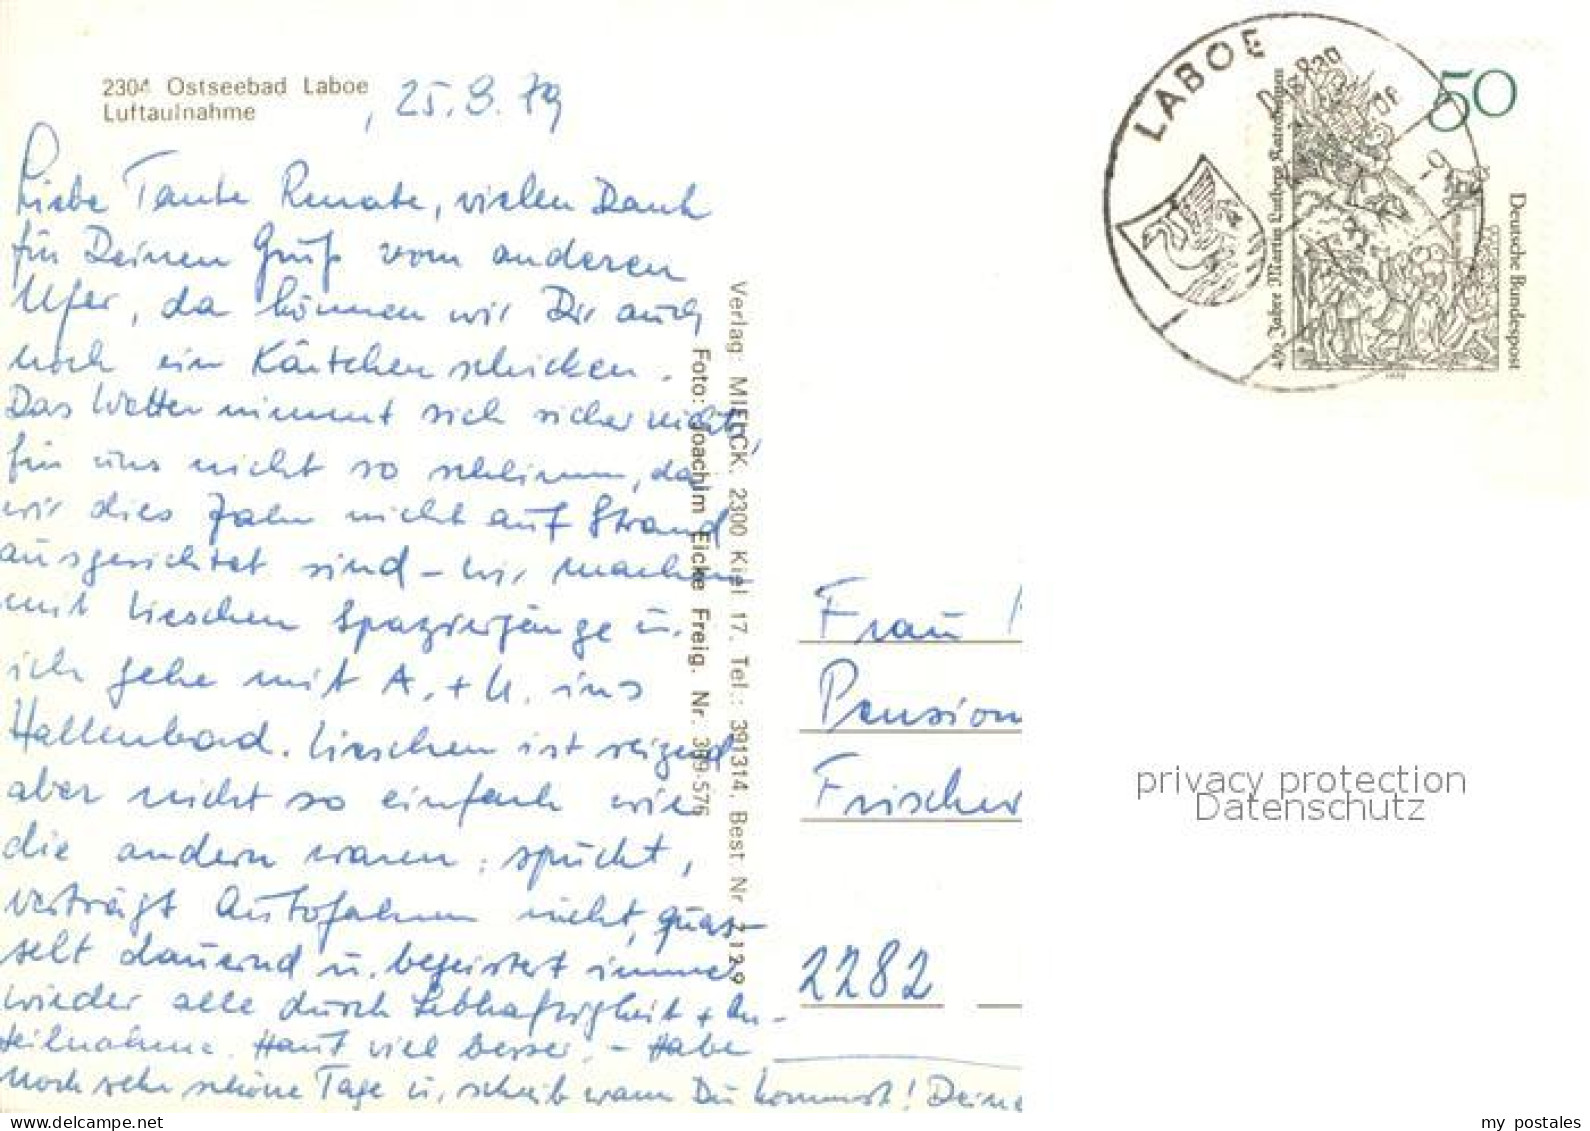 2304 Ostseebad Laboe
Luftaufnahme
, 25.9.79
Liebe Tante Renate, vielen Dank
für Deinen Gruß vom anderen
Ufer, da können wir Dir auch
noch ein Kärtchen schicken.
Das Wetter nimmt sich sicher nichts,
für uns nicht so schlimm, da
wir dies Jahr nicht auf Strand
ausgerichtet sind - wir machen
mit Lieschen Spaziergänge u.
ich gehe mit A. + U. ins
Hallenbad. Lieschen ist reizend
aber nicht so einfach wie
die andern waren: spuckt,
verträgt Autofahren nicht, quas-
selt dauernd u. begeistert immer
wieder alle durch Lebhaftigkeit + An-
teilnahme. Haut viel besser. - Habe
noch sehr schöne Tage u. schreib wann Du kommst! Deine
Verlag: MIELCK, 2300 Kiel 17, Tel.: 391314, Best. Nr. 2129
Foto: Joachim Eicke Freig. Nr. 389-576
LABOE
50
Deutsche Bundespost
450 Jahre Martin Luthers Katechismen
1979
Frau
Pension
Frischer
2282
privacy protection
Datenschutz
www.delcampe.net
my_postales